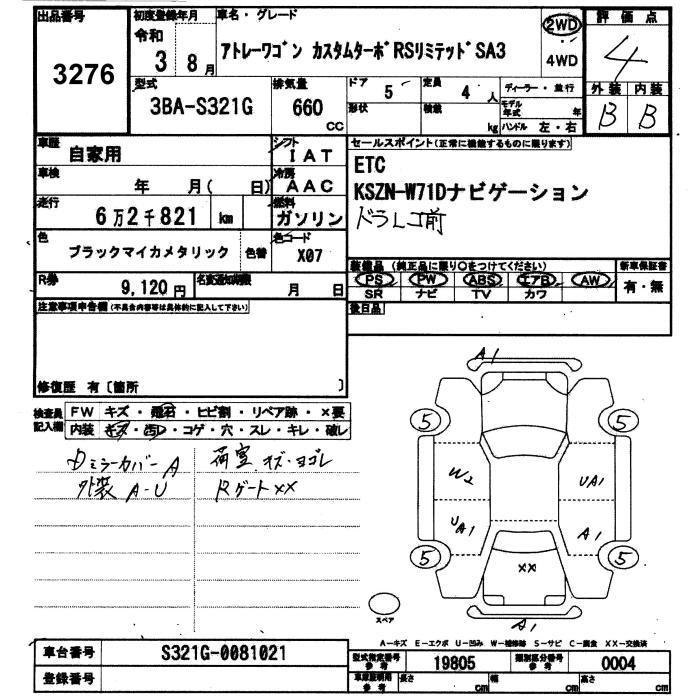 出品番号 3276
初度登録年月 令和 3 8月
車名・グレード
アトレーワゴン カスタムターボRSリミテッドSA3
2WD
4WD
評価点
4
外装 内装
B B
型式
3BA-S321G
排気量
660 cc
ドア 5
定員 4 人
形状
積載 kg
ディーラー・並行
モデル年式 年
ハンドル 左・右
車歴 自家用
シフト IAT
車検 年 月( 日)
冷房 AAC
走行 6万2千821 km
燃料 ガソリン
色 ブラックマイカメタリック 色替
色コード X07
R券 9,120円
名変通知期限 月 日
セールスポイント(正常に機能するものに限ります)
ETC
KSZN-W71Dナビゲーション
ドラレコ前
装備品 (純正品に限り○をつけてください)
PS PW ABS エアB AW
SR ナビ TV カワ
新車保証書
有・無
後日品
注意事項申告欄(不具合内容等は具体的に記入して下さい)
修復歴 有〔箇所 〕
検査員記入欄
FW キズ・飛石・ヒビ割・リペア跡・×要
内装 キズ・汚レ・コゲ・穴・スレ・キレ・破レ
Dミラーカバー A
外装 A-U
荷室 キズ・ヨゴレ
Rゲート××
A1
5 5
W2 UA1
UA1 A1
5 5
××
A1
スペア
A―キズ E―エクボ U―凹み W―補修跡 S―サビ C―腐食 XX―交換済
車台番号 S321G-0081021
登録番号
型式指定番号 参考 19805
類別区分番号 参考 0004
車庫証明用 参考 長さ cm 幅 cm 高さ cm